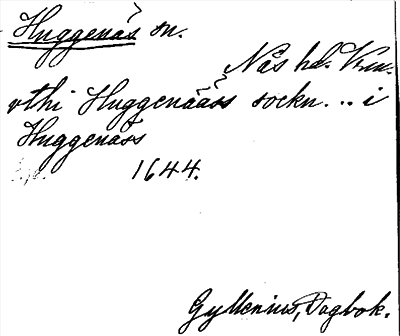 Huggenäs sn.
Näs hd. Vrm.
vthi Huggenääss sockn... i
Huggenäss
1644.
Gyllenius, Dagbok.